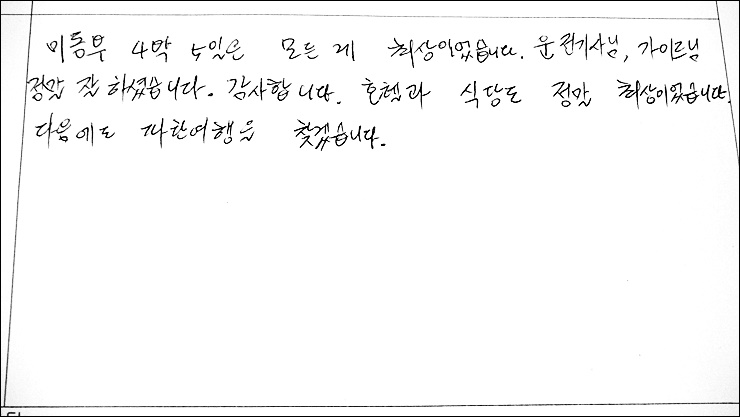 미동부 4박 5일은 모든 게 최상이었습니다. 운전기사님, 가이드님
정말 잘 하셨습니다. 감사합니다. 호텔과 식당도 정말 최상이었습니다.
다음에도 푸른여행을 찾겠습니다.